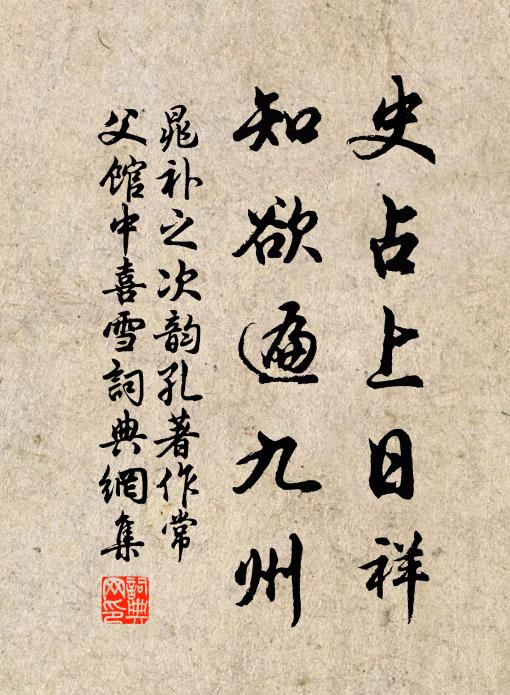 史占上日祥
知欲遍九州
晁補之次韵孔著作常
父館中喜雪詞典網集
詞典網印